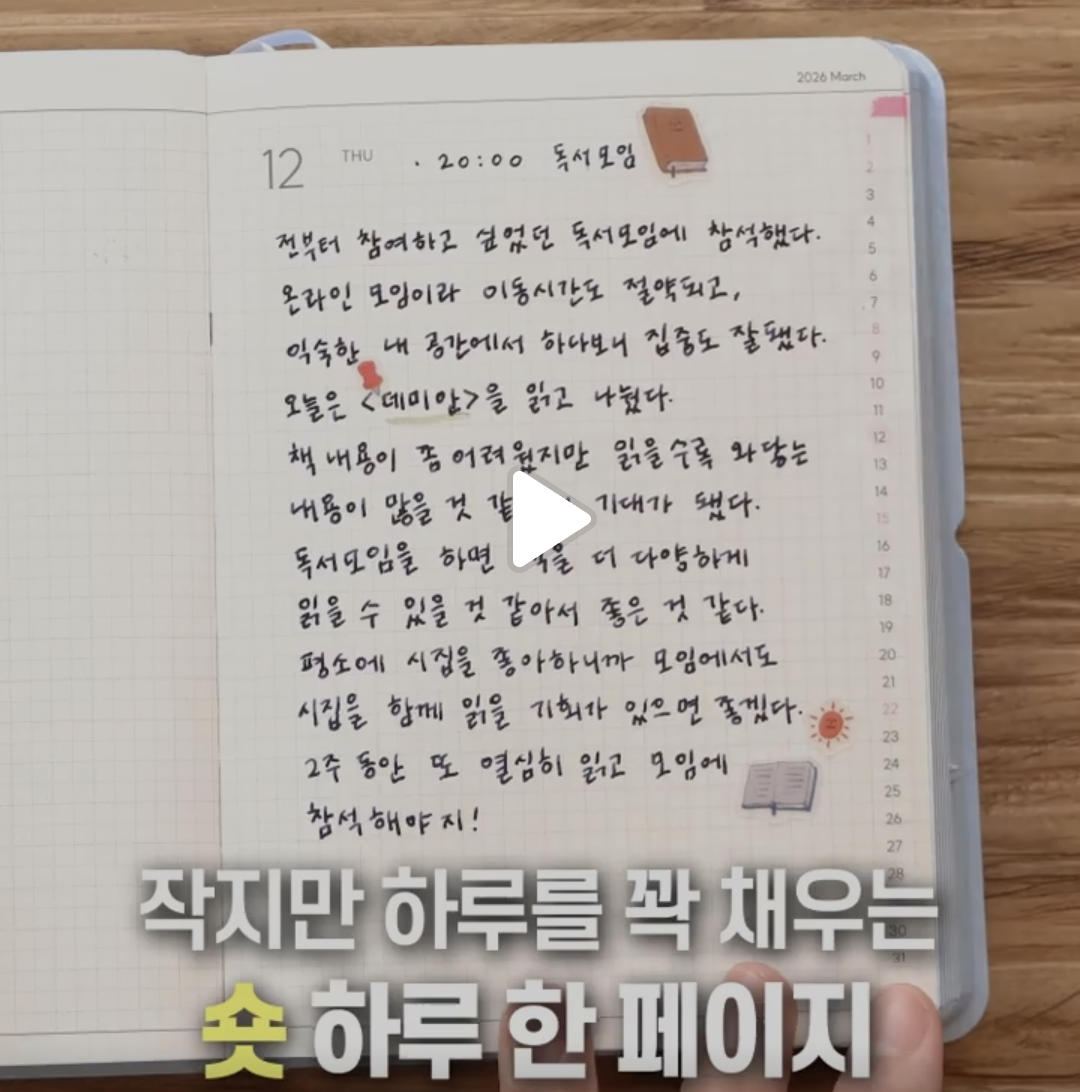 2026 March
12 THU · 20:00 독서모임
전부터 참여하고 싶었던 독서모임에 참석했다.
온라인 모임이라 이동시간도 절약되고,
익숙한 내 공간에서 하다보니 집중도 잘됐다.
오늘은 <데미안>을 읽고 나눴다.
책 내용이 좀 어려웠지만 읽을수록 와닿는
내용이 많을 것 기대가 됐다.
독서모임을 하면 더 다양하게
읽을 수 있을 것 같아서 좋은 것 같다.
평소에 시집을 좋아하니까 모임에서도
시집을 함께 읽을 기회가 있으면 좋겠다.
2주 동안 또 열심히 읽고 모임에
참석해야지!
1
2
3
4
5
6
7
8
9
10
11
12
13
14
15
16
17
18
19
20
21
22
23
24
25
26
27
28
30
31
작지만 하루를 꽉 채우는
숏 하루 한 페이지